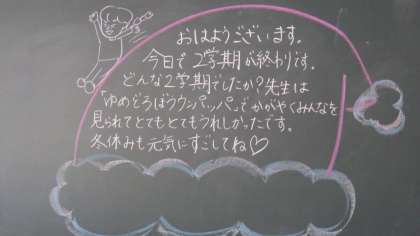 おはようございます。
今日で2学期が終わりです。
どんな2学期でしたか?先生は
「ゆめどろぼうウンパッパ」でかがやくみんなを
見られてとてもとてもうれしかったです。
冬休みも元気にすごしてね♡